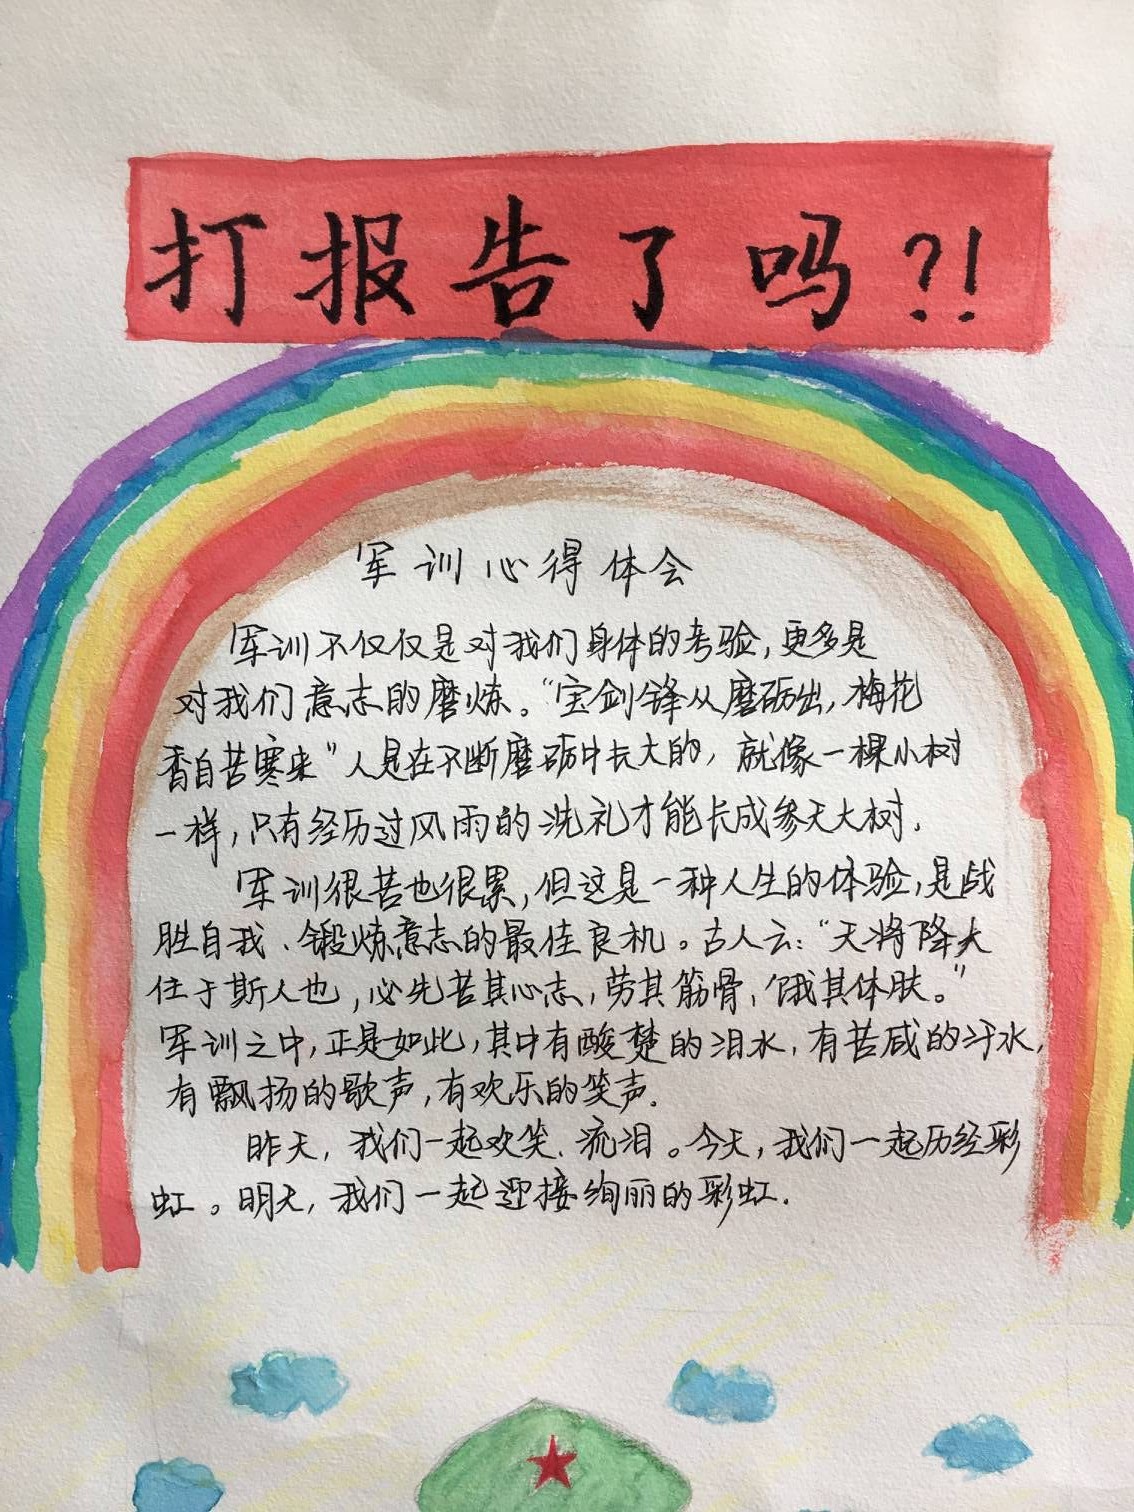 打报告了吗?!
军训心得体会
军训不仅仅是对我们身体的考验,更多是
对我们意志的磨炼。“宝剑锋从磨砺出,梅花
香自苦寒来”人是在不断磨砺中长大的,就像一棵小树
一样,只有经历过风雨的洗礼才能长成参天大树.
军训很苦也很累,但这是一种人生的体验,是战
胜自我、锻炼意志的最佳良机。古人云:“天将降大
任于斯人也,必先苦其心志,劳其筋骨,饿其体肤。”
军训之中,正是如此,其中有酸楚的泪水,有苦咸的汗水,
有飘扬的歌声,有欢乐的笑声.
昨天,我们一起欢笑、流泪。今天,我们一起历经彩
虹。明天,我们一起迎接绚丽的彩虹.